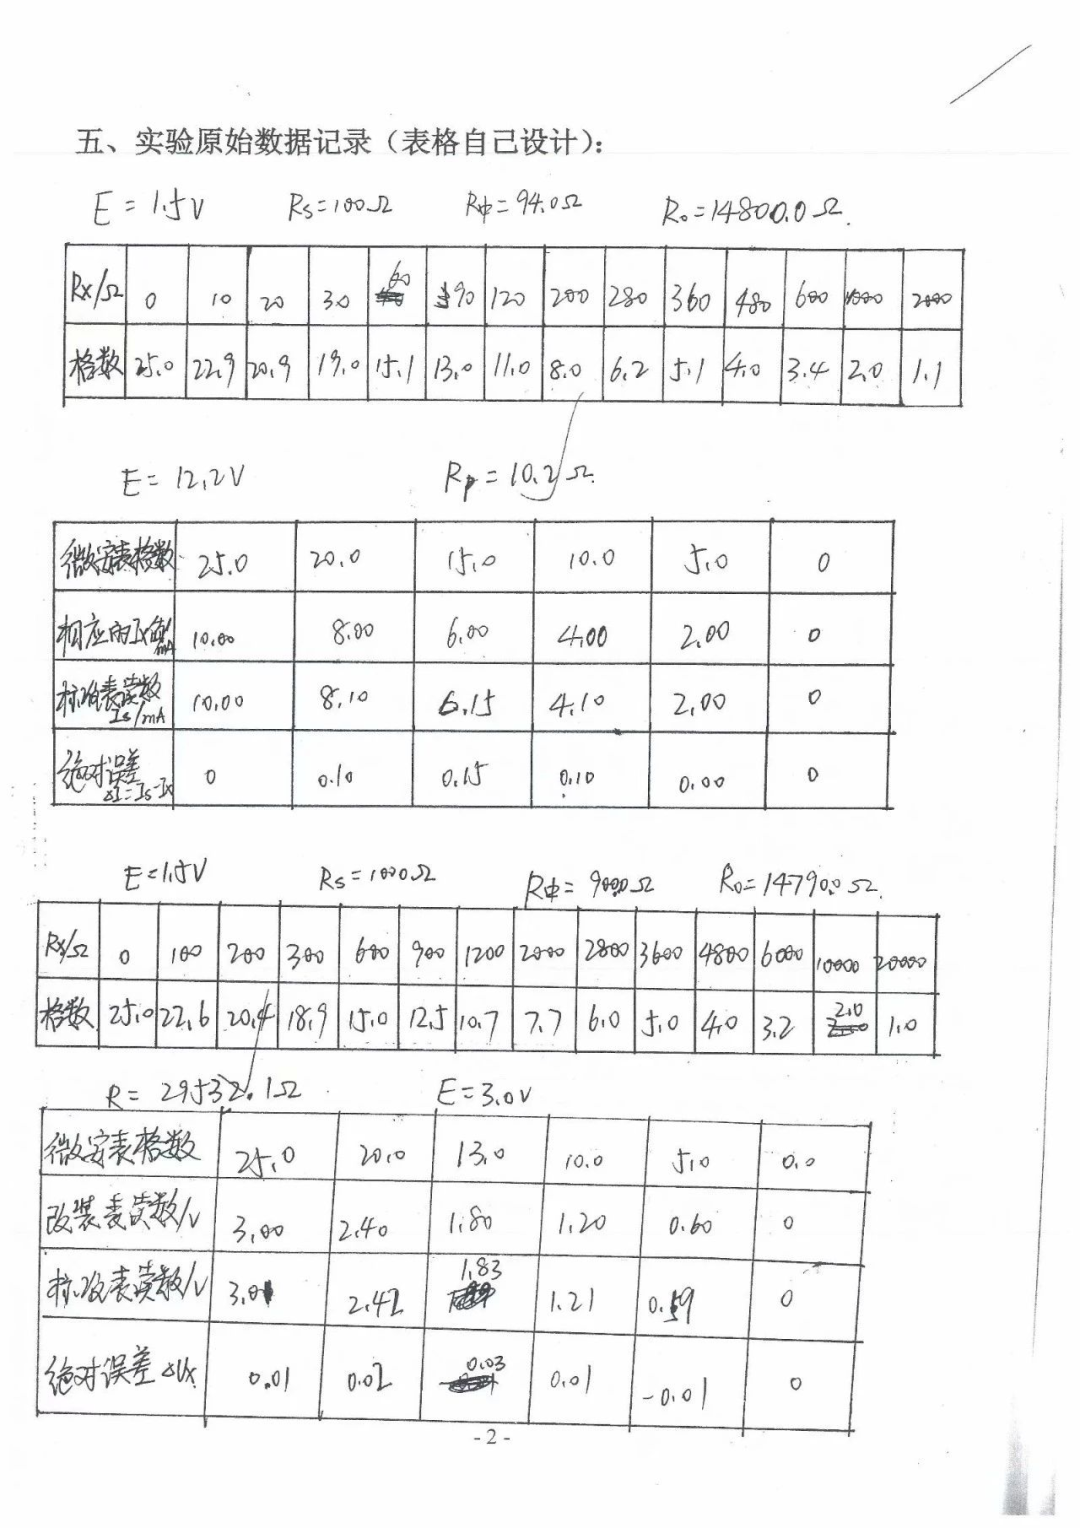 五、实验原始数据记录（表格自己设计）：
E = 1.5V Rs=100Ω R中=94.0Ω R₀=14800.0Ω.
Rx/Ω 0 10 20 30 60 90 120 200 280 360 480 600 1000 2000
格数 25.0 22.9 20.9 19.0 15.1 13.0 11.0 8.0 6.2 5.1 4.0 3.4 2.0 1.1
E = 12.2V Rp = 10.2Ω.
微安表格数 25.0 20.0 15.0 10.0 5.0 0
相应的Ix值/mA 10.00 8.00 6.00 4.00 2.00 0
标准表读数Is/mA 10.00 8.10 6.15 4.10 2.00 0
绝对误差ΔI=Is-Ix 0 0.10 0.15 0.10 0.00 0
E=1.5V Rs=1000Ω R中= 900.0Ω R₀=14790.0Ω.
Rx/Ω 0 100 200 300 600 900 1200 2000 2800 3600 4800 6000 10000 20000
格数 25.0 22.6 20.4 18.9 15.0 12.5 10.7 7.7 6.0 5.0 4.0 3.2 2.0 1.0
R= 29532.1Ω E=3.0V
微安表格数 25.0 20.0 13.0 10.0 5.0 0.0
改装表读数/V 3.00 2.40 1.80 1.20 0.60 0
标准表读数/V 3.01 2.42 1.83 1.21 0.59 0
绝对误差ΔUx 0.01 0.02 0.03 0.01 -0.01 0
- 2 -